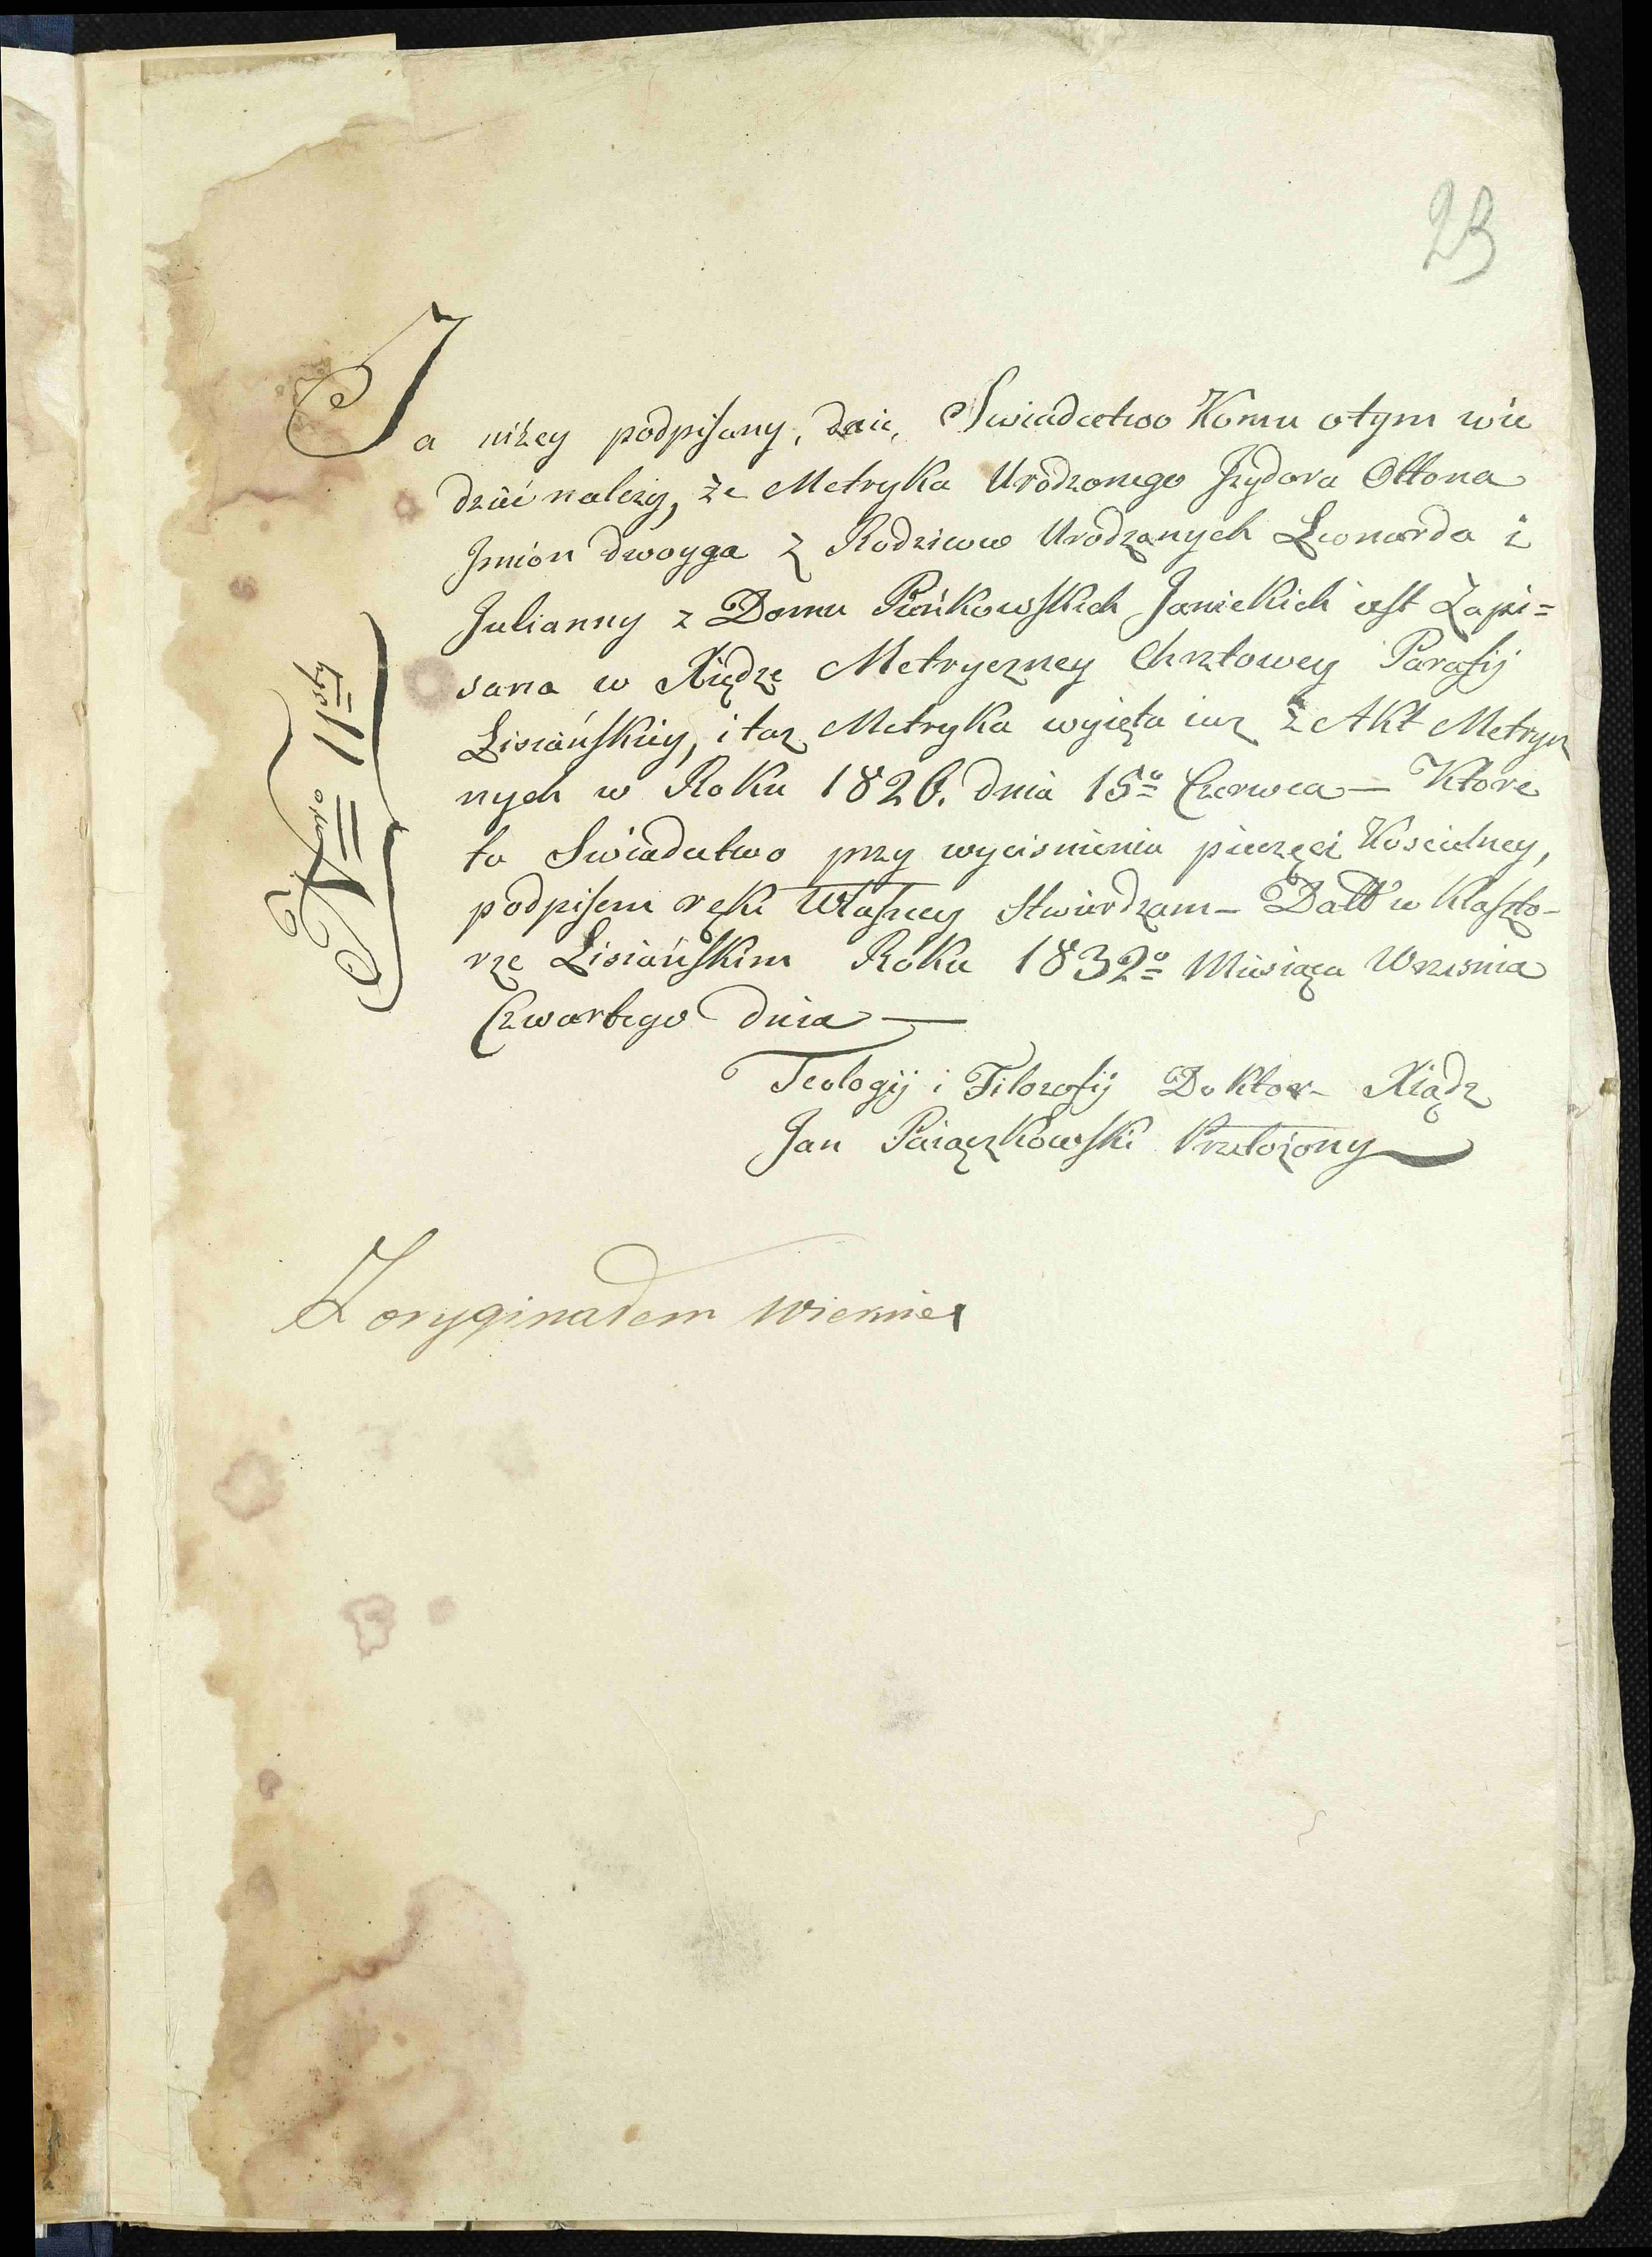 23
Ja niżey podpisany, daię, Swiadectwo Komu otym wie
dzieć należy, że Metryka Urodzonego Jzydora Ottona
Jmion dwoyga z Rodzicow Urodzonych Leonarda i
Julianny z Domu Pieńkowskich Janickich iest Zapi=
sana w Xiędze Metryczney Chrztowey Parafij
Lisiańskiey, i taz Metryka wyięta iuz z Akt Metrycz
nych w Roku 1826. dnia 15º Czerwca — Ktore
to Swiadectwo przy wycisnieniu pieczęci Koscielney,
podpisem ręki Własney stwierdzam — Datt w Klaszto-
rze Lisiańskim Roku 1832º Miesiąca Wrzesnia
Czwartego dnia —
Teologij i Filozofij Doktor - Xiądz
Jan Paiączkowski Przełożony
Nro 11sty
Z oryginałem wiernie